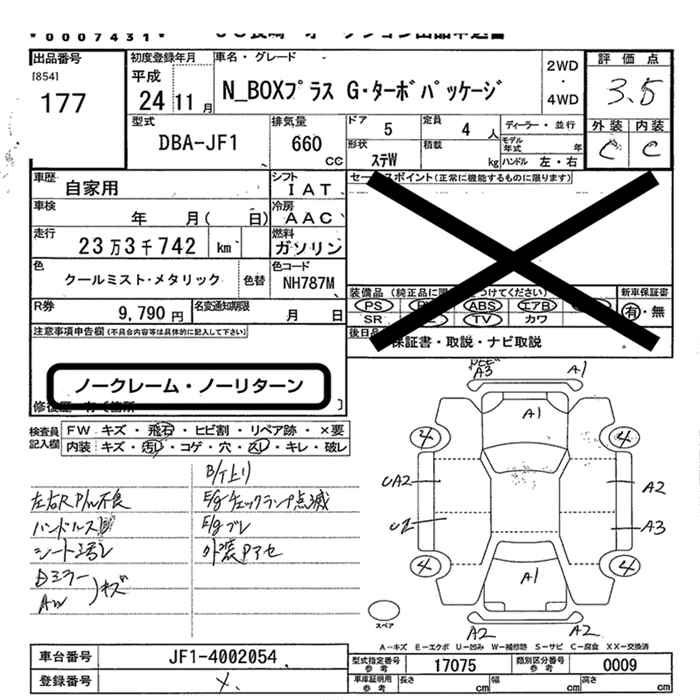 *0007431*
出品番号
[854]
177
初度登録年月
平成
24年11月
車名・グレード
N_BOXプラス G・ターボパッケージ
2WD
・
4WD
評価点
3.5
外装 内装
C C
型式
DBA-JF1
排気量
660
CC
ドア 5
定員 4 人
ディーラー・並行
形状
ステW
積載 kg
モデル年式 年
ハンドル 左・右
車歴
自家用
シフト
IAT
車検
年 月( 日)
冷房
AAC
走行
23万3千742 km
燃料
ガソリン
色
クールミスト・メタリック
色替
色コード
NH787M
R券
9,790円
名変通知期限
月 日
セールスポイント(正常に機能するものに限ります)
装備品
PS
ABS エアB
SR TV カワ
新車保証書
有・無
後日品
保証書・取説・ナビ取説
注意事項申告欄(不具合内容等は具体的に記入して下さい)
ノークレーム・ノーリターン
検査員
記入欄
FW キズ・飛石・ヒビ割・リペア跡・×要
内装 キズ・汚レ・コゲ・穴・スレ・キレ・破レ
B/T上リ
左右R P/W不良
E/gチェックランプ点滅
ハンドルスレ
E/gブレ
シート汚レ
外装Pアセ
Dミラー
キズ
A3 A1
A1
4 4
UA2 A2
U2 A3
4 4
A1
A2 A2
スペア
A-キズ E-エクボ U-凹み W-補修跡 S-サビ C-腐食 XX-交換済
車台番号
JF1-4002054
登録番号
×
型式指定番号
参考
17075
類別区分番号
参考
0009
車庫証明用
参考
長さ cm
幅 cm
高さ cm